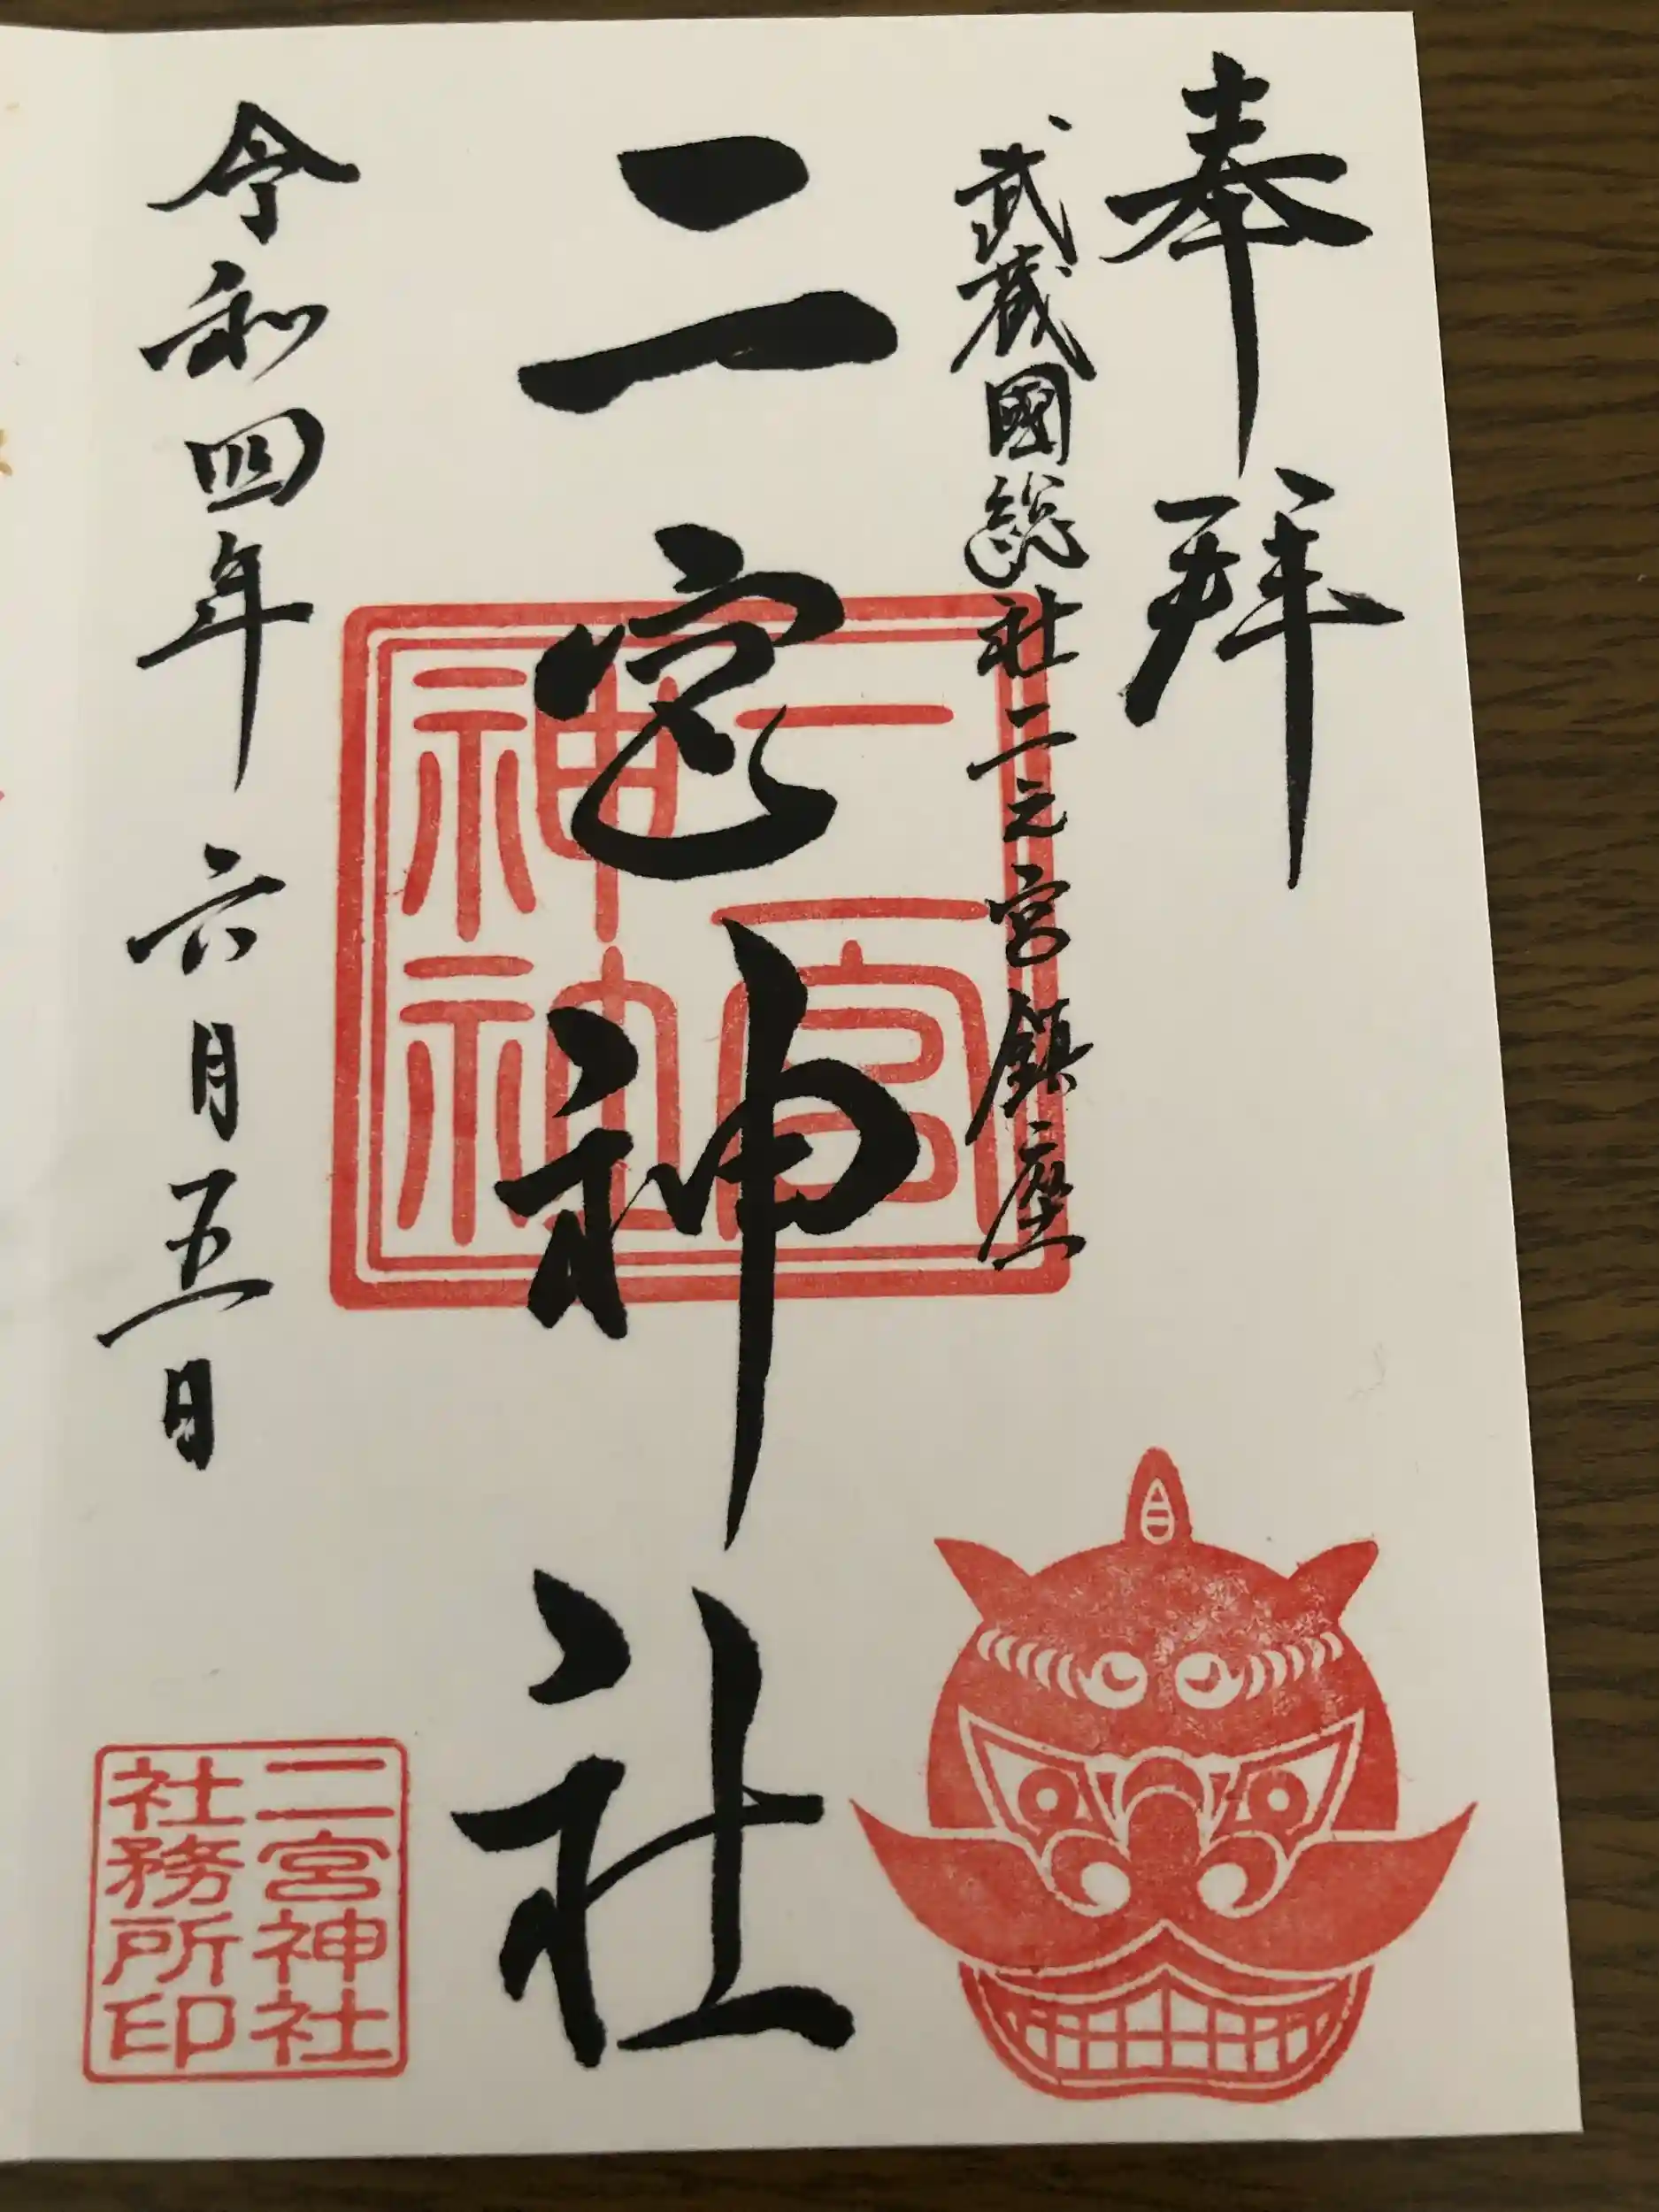 奉拝
武蔵國総社二之宮鎮座
二宮神社
二宮神社
令和四年六月五日
二宮神社
社務所印